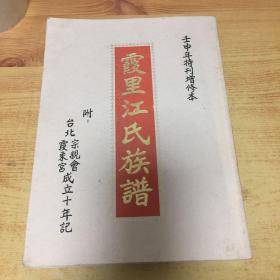 壬申年特刊增修本
霞里江氏族譜
附：
台北宗親會
霞東宮成立十年記